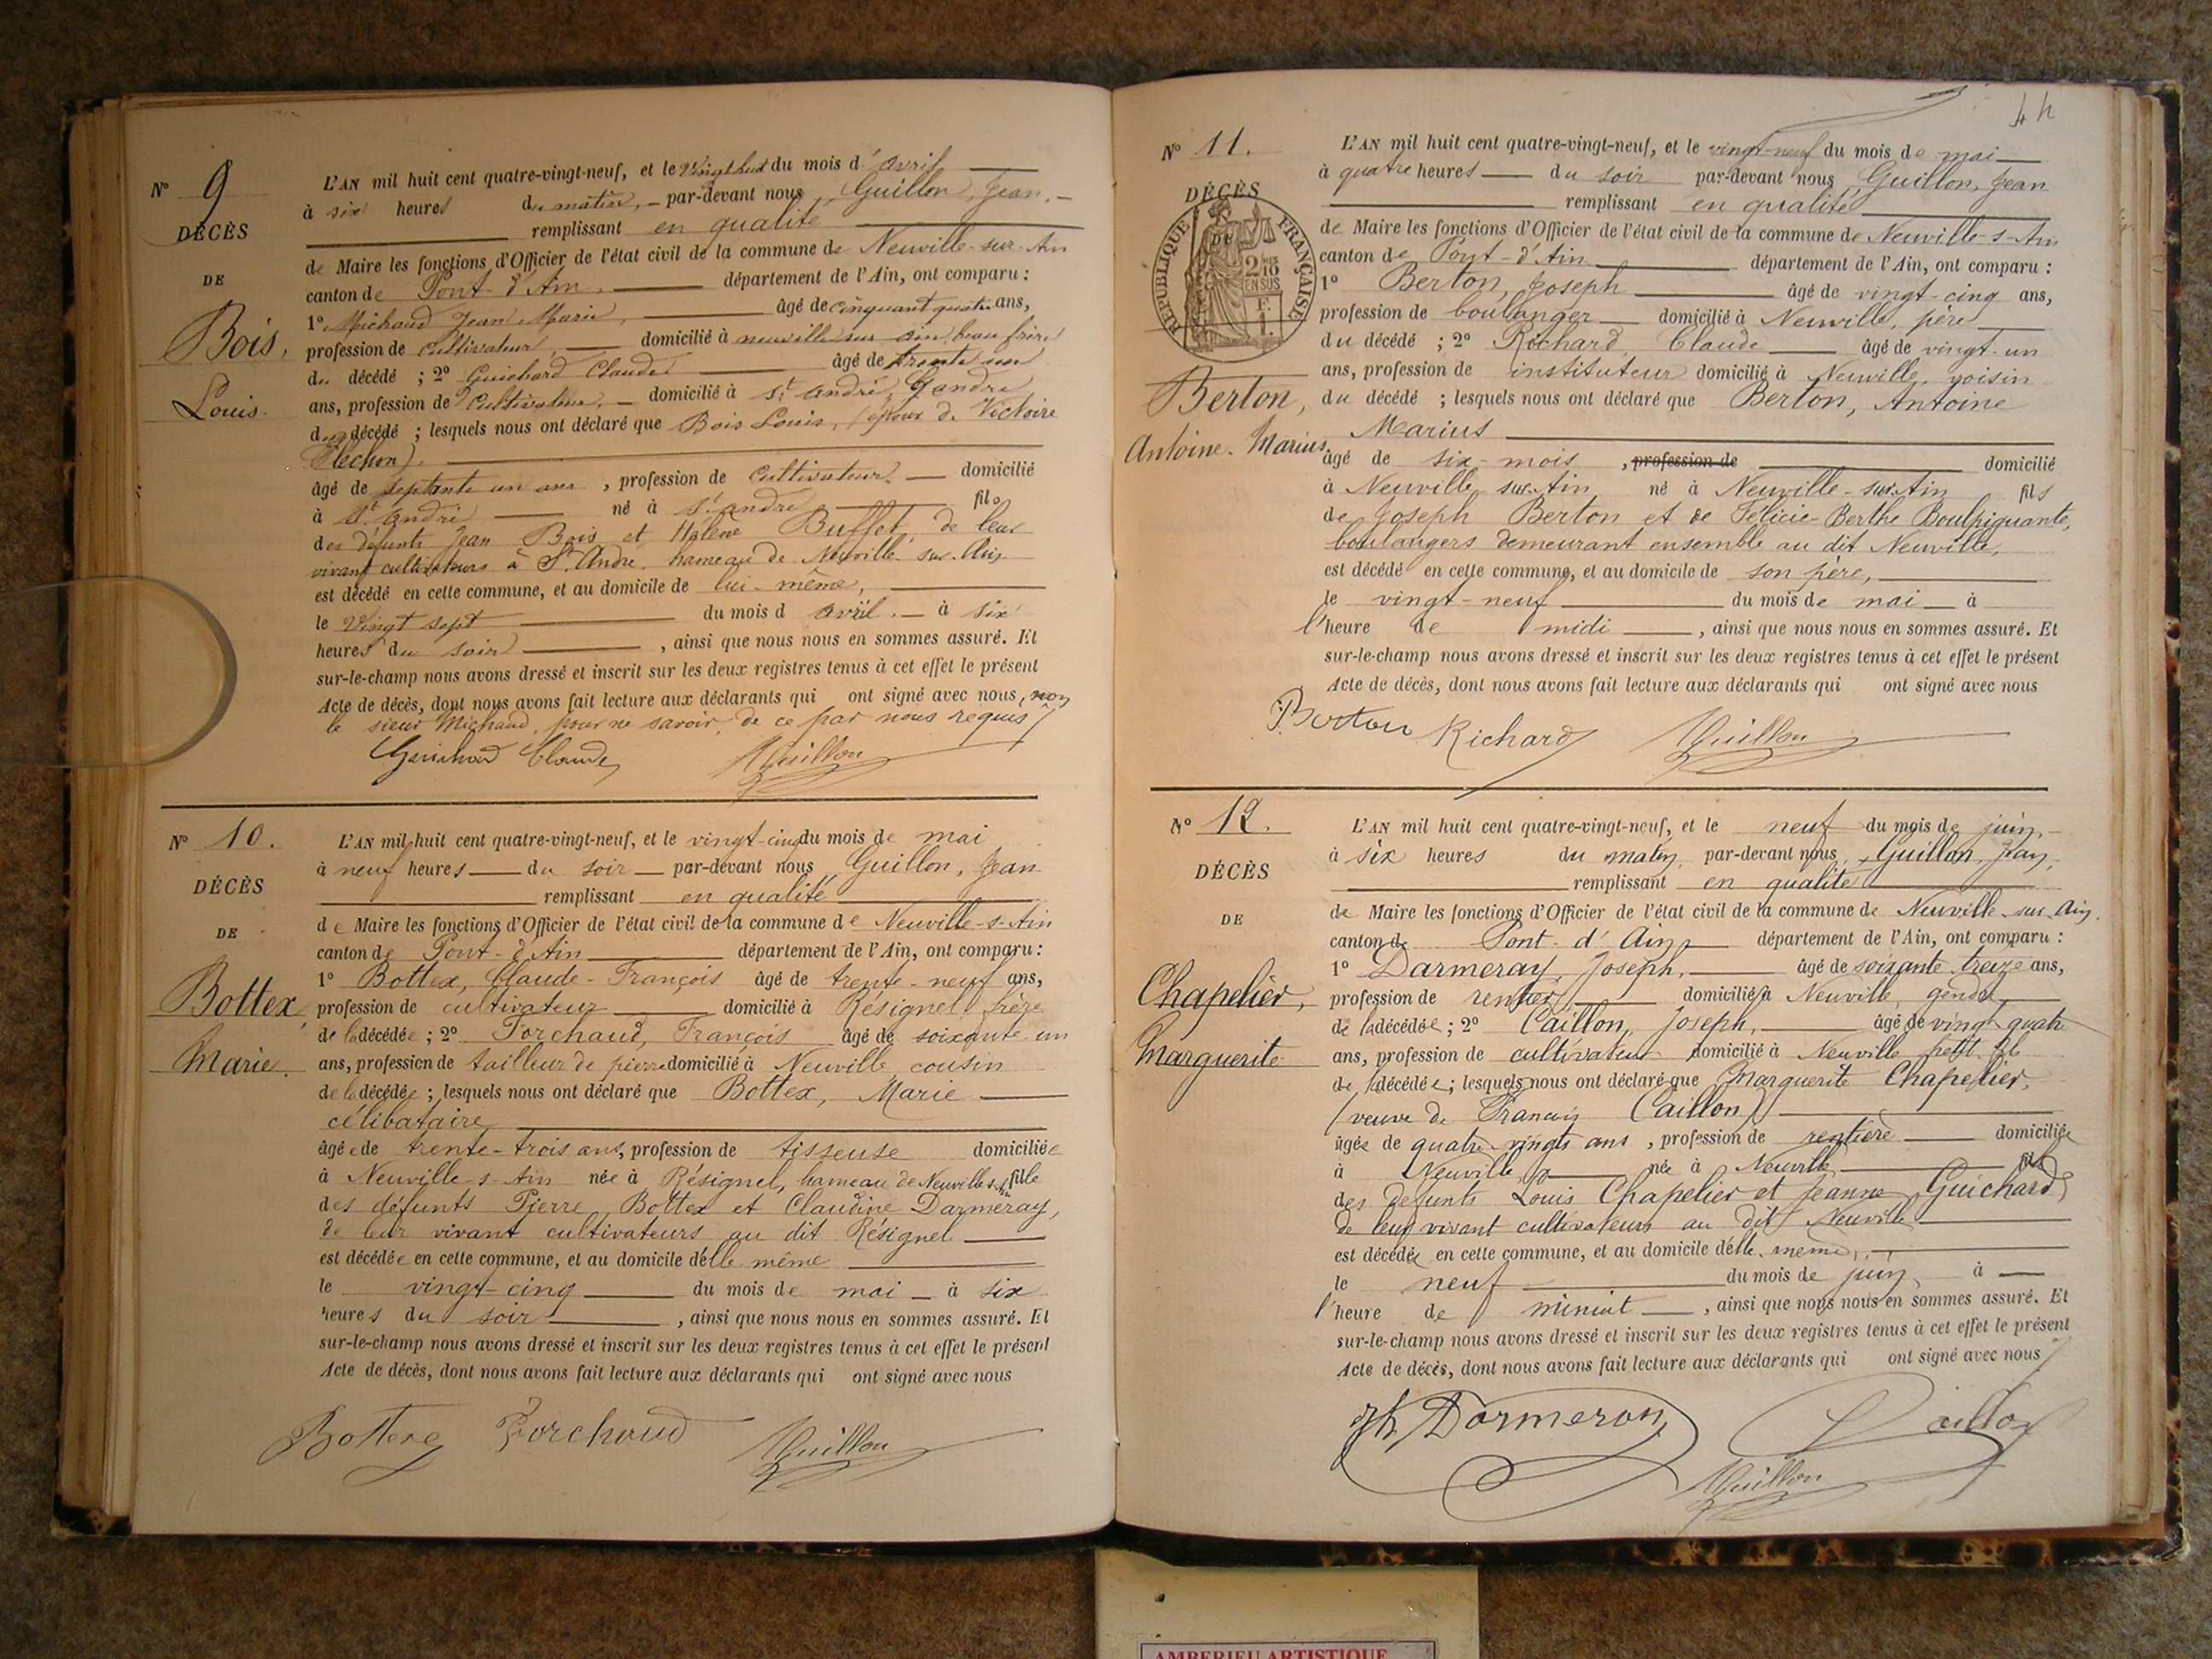 N° 9
DÉCÈS
DE
Bois,
Louis.
L'AN mil huit cent quatre-vingt-neuf, et le Vingt huit du mois d'avril
à six heures du matin, par-devant nous, Guillon, Jean,
remplissant en qualité
de Maire les fonctions d'Officier de l'état civil de la commune de Neuville-sur-Ain
canton de Pont-d'Ain département de l'Ain, ont comparu :
1° Michaud Jean Marie, âgé de cinquant quatre ans,
profession de Cultivateur, domicilié à neuville sur ain, beau frère
du décédé ; 2° Guichard Claude âgé de trente un
ans, profession de Cultivateur, domicilié à St andré, Gendre
du décédé ; lesquels nous ont déclaré que Bois Louis, (époux de Victoire
Fléchon).
âgé de septante un ans, profession de Cultivateur. domicilié
à St andré né à St andré fils
des défunts Jean Bois et Hélène Buffet, de leur
vivant cultivateurs à St André hameau de Neuville-sur-Ain
est décédé en cette commune, et au domicile de lui-même,
le Vingt sept du mois d avril. à six
heures du soir, ainsi que nous nous en sommes assuré. Et
sur-le-champ nous avons dressé et inscrit sur les deux registres tenus à cet effet le présent
Acte de décès, dont nous avons fait lecture aux déclarants qui ont signé avec nous, non
le sieur Michaud, pour ne savoir, de ce par nous requis
Guichard Claude Guillon
N° 10.
DÉCÈS
DE
Bottex,
Marie.
L'AN mil huit cent quatre-vingt-neuf, et le vingt-cinq du mois de mai
à neuf heures du soir par-devant nous Guillon, Jean
remplissant en qualité
de Maire les fonctions d'Officier de l'état civil de la commune de Neuville-s-Ain
canton de Pont-d'Ain département de l'Ain, ont comparu :
1° Bottex, Claude-François âgé de trente-neuf ans,
profession de cultivateur domicilié à Résignel, frère
de la décédée ; 2° Forchaud, François âgé de soixante-un
ans, profession de tailleur de pierre domicilié à Neuville, cousin
de la décédée ; lesquels nous ont déclaré que Bottex, Marie
célibataire
âgée de trente-trois ans, profession de tisseuse domiciliée
à Neuville-s-Ain née à Résignel, hameau de Neuville s Ain fille
des défunts Pierre Bottex et Claudine Darmeray,
de leur vivant cultivateurs au dit Résignel
est décédée en cette commune, et au domicile d'elle même
le vingt-cinq du mois de mai à six
heures du soir, ainsi que nous nous en sommes assuré. Et
sur-le-champ nous avons dressé et inscrit sur les deux registres tenus à cet effet le présent
Acte de décès, dont nous avons fait lecture aux déclarants qui ont signé avec nous
Bottex Forchaud Guillon
N° 11.
DÉCÈS
RÉPUBLIQUE FRANÇAISE
2/10 EN SUS
Berton,
Antoine-Marius,
L'AN mil huit cent quatre-vingt-neuf, et le vingt-neuf du mois de mai
à quatre heures du soir par-devant nous Guillon, Jean
remplissant en qualité
de Maire les fonctions d'Officier de l'état civil de la commune de Neuville-s-Ain
canton de Pont-d'Ain département de l'Ain, ont comparu :
1° Berton, Joseph âgé de vingt-cinq ans,
profession de boulanger domicilié à Neuville, père
du décédé ; 2° Richard Claude âgé de vingt-un
ans, profession de instituteur domicilié à Neuville, voisin
du décédé ; lesquels nous ont déclaré que Berton, Antoine
Marius
âgé de six-mois, profession de domicilié
à Neuville-sur-Ain né à Neuville-sur-Ain fils
de Joseph Berton et de Félicie-Berthe Boulpiquante,
boulangers demeurant ensemble au dit Neuville,
est décédé en cette commune, et au domicile de son père,
le vingt-neuf du mois de mai à
l'heure de midi, ainsi que nous nous en sommes assuré. Et
sur-le-champ nous avons dressé et inscrit sur les deux registres tenus à cet effet le présent
Acte de décès, dont nous avons fait lecture aux déclarants qui ont signé avec nous
Berton Richard Guillon
N° 12.
DÉCÈS
DE
Chapelier,
Marguerite
L'AN mil huit cent quatre-vingt-neuf, et le neuf du mois de juin,
à six heures du matin par-devant nous, Guillon, Jean,
remplissant en qualité
de Maire les fonctions d'Officier de l'état civil de la commune de Neuville-sur-Ain,
canton de Pont-d'Ain département de l'Ain, ont comparu :
1° Darmeray, Joseph, âgé de soixante treize ans,
profession de rentier, domicilié à Neuville, gendre
de la décédée ; 2° Caillon, Joseph, âgé de vingt quatre
ans, profession de cultivateur domicilié à Neuville petit fils
de la décédée ; lesquels nous ont déclaré que Marguerite Chapelier,
(veuve de François Caillon)
âgée de quatre-vingts ans, profession de rentière domiciliée
à Neuville née à Neuville fille
des défunts Louis Chapelier et Jeanne Guichard
de leur vivant cultivateurs au dit Neuville
est décédée en cette commune, et au domicile d'elle même,
le neuf du mois de juin à
l'heure de minuit, ainsi que nous nous en sommes assuré. Et
sur-le-champ nous avons dressé et inscrit sur les deux registres tenus à cet effet le présent
Acte de décès, dont nous avons fait lecture aux déclarants qui ont signé avec nous
Darmeron Caillon
Guillon
AMBERIEU ARTISTIQUE